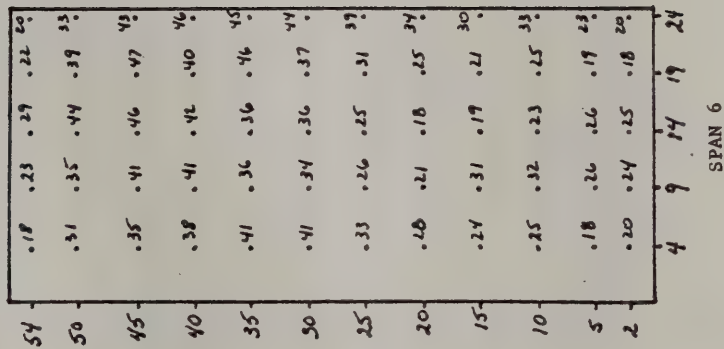 54 .18 .23 .29 .22 20.
50 .31 .35 .44 .39 33.
45 .35 .41 .46 .47 43.
40 .38 .41 .42 .40 46.
35 .41 .36 .36 .46 45.
30 .41 .34 .36 .37 44.
25 .33 .26 .25 .31 39.
20 .28 .21 .18 .25 34.
15 .24 .31 .19 .21 30.
10 .25 .32 .23 .25 33.
5 .18 .26 .26 .19 23.
2 .20 .24 .25 .18 20.
4 9 14 19 24
SPAN 6